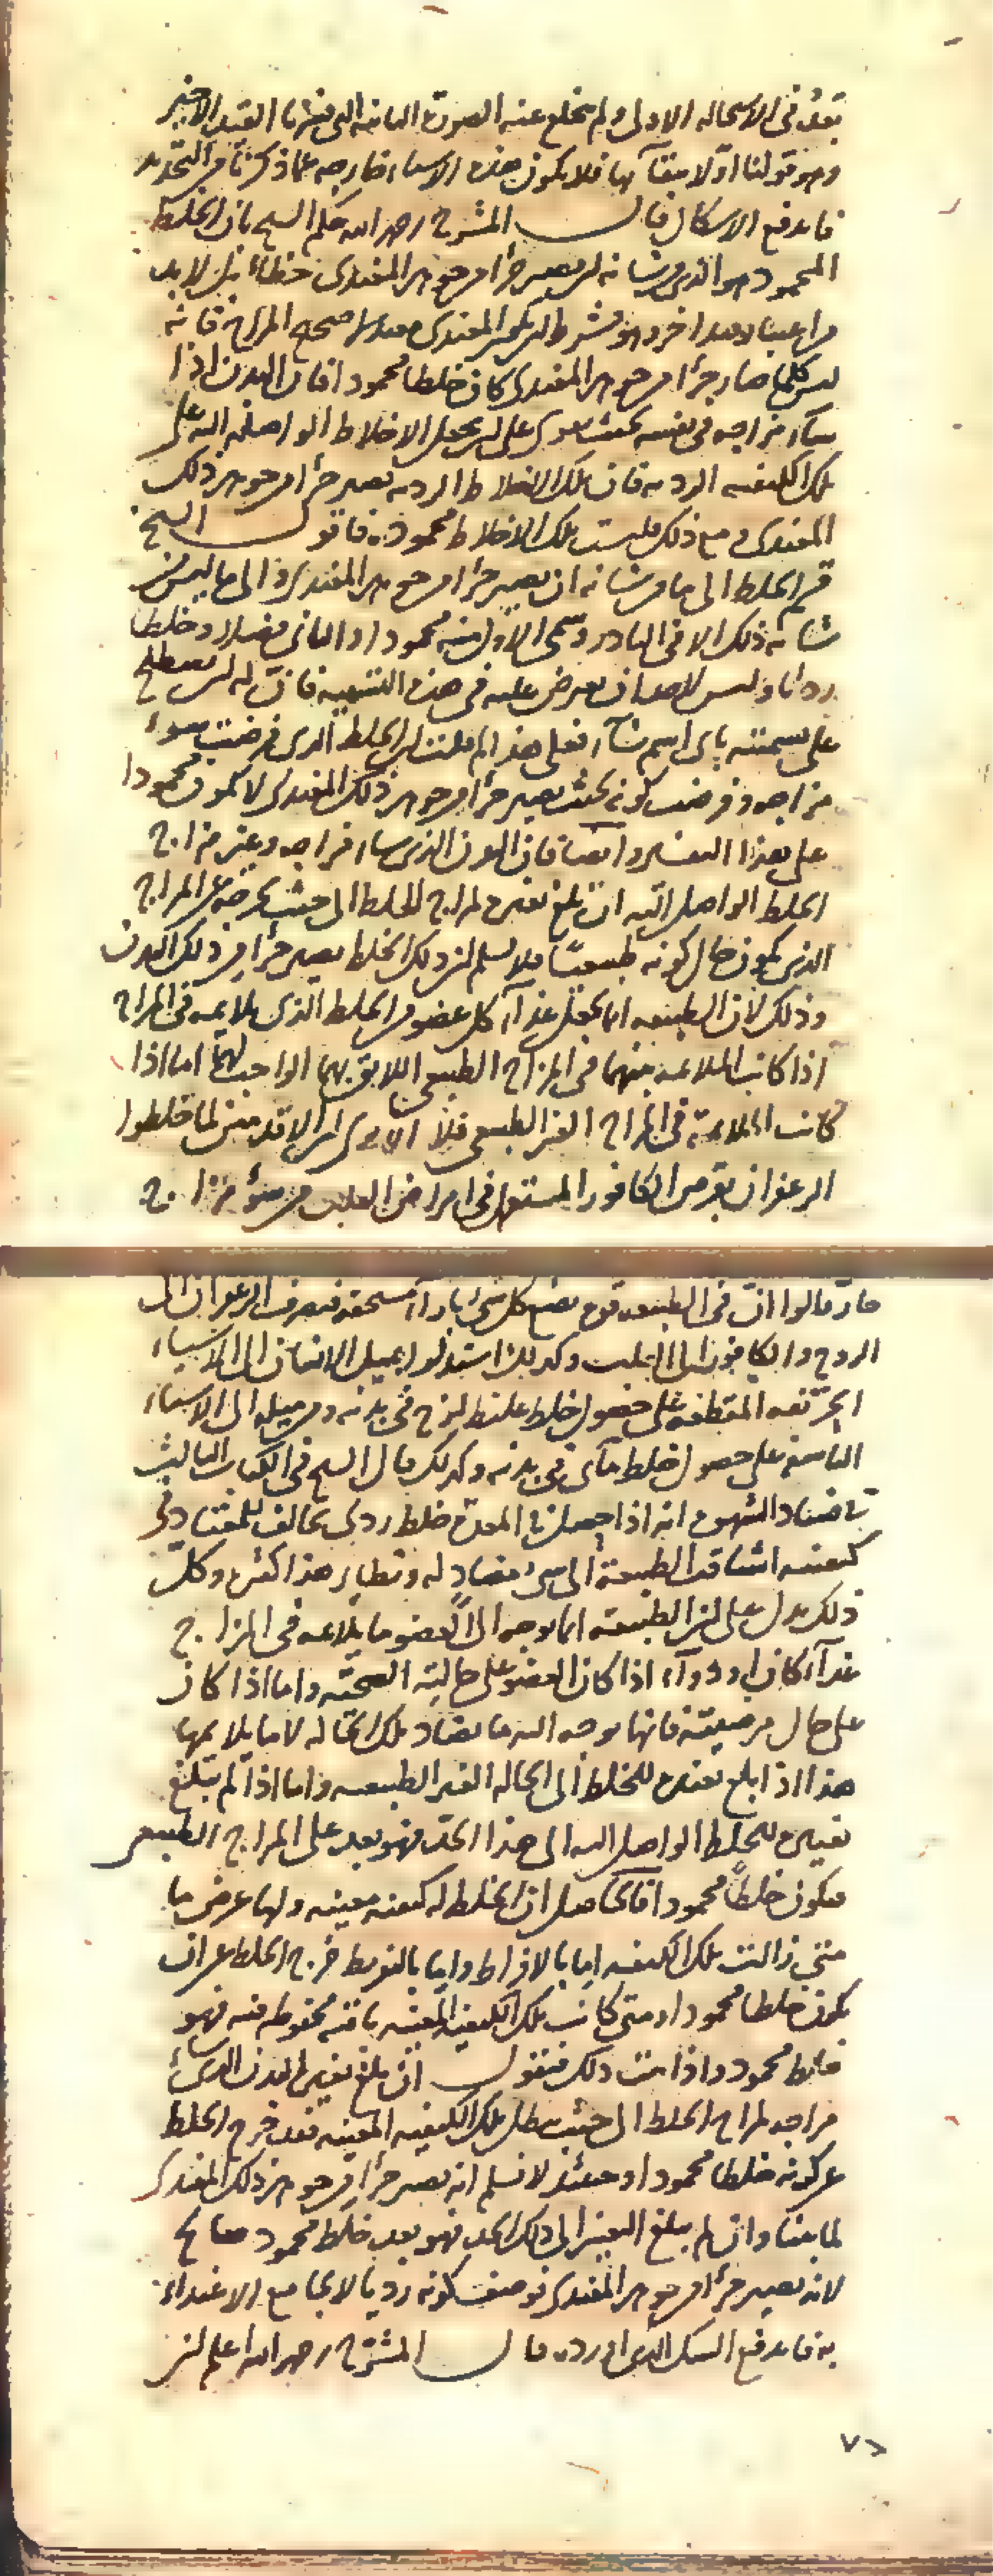 بعد في الاستحاله الاولى ولم تخلع عنه الصورة الثانيه التي بقيد القيد الاخير
وهو قولنا اولا فلا يكون هذه الاشياء خارجه عما ذكرنا من التحديد
فاندفع الاشكال قال المشرح رحمه الله حكم الشيخ بان الخلط
المحمود هو الذي من شانه ان يصير جزأ من جوهر المغتذى خطاء بل لابد
من اخر وهو بشرط ان يكون المغتذى صحيح المزاج فانه
ليس كلما صار جزأ من جوهر المغتذى كان خلطا محمودا فان البدن اذا
ساء مزاجه في نفسه بحيث يقوى على ان يحيل الاخلاط الواصله اليه على
تلك الكيفيه الرديه فان تلك الاخلاط الرديه يصير جزأ من جوهر ذلك
المغتذى ومع ذلك فليست تلك الاخلاط محموده فاقول الشيخ
قسم الخلط الى ما من شانه ان يصير جزأ من جوهر المغتذى والى ما ليس من
شانه ذلك الا في النادر وسمى الاول منه محمودا والثاني فضلا وخلطا
رديا وليس لاحد ان يعرض عليه في هذه التسميه فان له ان يصطلح
على تسميته باى اسم شاء فعلى هذا لم قلت ان الخلط الذي فرضت سوء
مزاجه وفرضت كونه بحيث يصير جزأ من جوهر ذلك المغتذى لا يكون محمودا
على هذا التفسير وايضا فان البدن الذي ساء مزاجه وغير مزاج
الخلط الواصل اليه ان بلغ تغييره لمزاج الخلط الى حيث يخرجه عن المزاج
الذي يكون حال كونه طبيعيا فلا نسلم ان ذلك الخلط يصير جزأ من ذلك البدن
وذلك لان الطبيعه انما تجعل غذاء كل عضو من الخلط الذي يلايمه في المزاج
اذا كانت الملايمه بينهما في المزاج الطبيعي اللايق بهما الواجب لهما اما اذا
كانت الملايمة في المزاج الغير الطبيعي فلا الا ترى ان الاقدمين لما خلطوا
الزعفران بقرص الكافور المستعمل في امراض القلب من سوء مزاج
حار قالوا ان في الطبيعه قوه تضع كل شيء بازاء مستحقه فتصرف الزعفران الى
الروح والكافور الى القلب وكذلك استدلوا بميل الانسان الى الاشياء
الحريفه المقطعه على حصول خلط غليظ لزج في بدنه ومن ميله الى الاشياء
الناشفه على حصول خلط مآى في بدنه وكذلك قال الشيخ في الكتاب الثالث
في فساد الشهوه انه اذا حصل في المعده خلط ردى مخالف للمعتاد في
كيفيته اشتاقت الطبيعة الى شيء مضاد له ونظاير هذا كثيره وكل
ذلك يدل على ان الطبيعه انما توجه الى العضو ما يلايمه في المزاج
غذآء كان او دوآء اذا كان العضو على حاله الصحيه واما اذا كان
على حال مرضيته فانها توجه اليه ما يضاد تلك الحاله لا ما يلايمها
هذا اذا بلغ تغييره للخلط الى الحاله الغير الطبيعيه واما اذا لم يبلغ
تغييره للخلط الواصل اليه الى هذا الحد فهو بعد على المزاج الطبيعي
فيكون خلطا محمودا فالحاصل ان الخلط له كيفيه معينه ولها عرض ما
متى زالت تلك الكيفيه اما بالافراط واما بالتفريط خرج الخلط عن ان
يكون خلطا محمودا ومتى كانت تلك الكيفيه المعينه باقيه محفوظه فيه فهو
خلط محمود واذا ثبت ذلك فنقول ان بلغ تغيير البدن الذي ساء
مزاجه لمزاج الخلط الى حيث يبطل تلك الكيفيه المعينه فقد خرج الخلط
عن كونه خلطا محمودا وحينئذ لا نسلم انه يصير جزأ من جوهر ذلك المغتذى
لما بينا وان لم يبلغ التغيير الى ذلك الحد فهو بعد خلط محمود صالح
لانه يصير جزأ من جوهر المغتذى فوصف كونه رديا لا يجامع الاغتذاء
به فاندفع الشك الذي اورده قال المشرح رحمه الله اعلم ان
٧٥